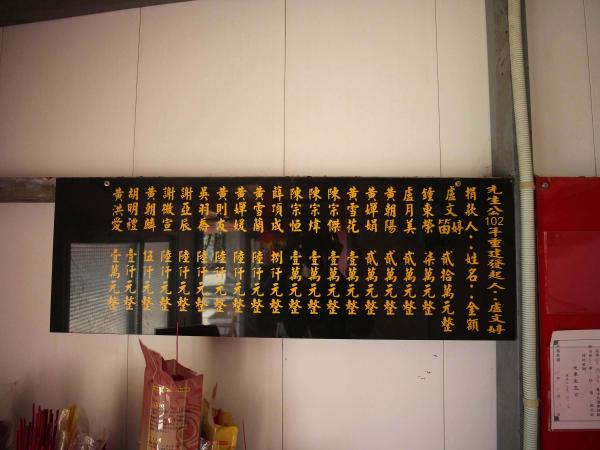 先生公102年重建發起人：盧文婷
捐款人：姓名：金額
盧文笛婷 貳拾萬元整
鍾東榮 柒萬元整
盧月美 貳萬元整
黃朝陽 貳萬元整
黃嬋娟 貳萬元整
黃雪花 壹萬元整
陳宗傑 壹萬元整
陳宗煒 壹萬元整
陳宗恒 壹萬元整
薛頂成 捌仟元整
黃雪蘭 陸仟元整
黃嬋媛 陸仟元整
黃則友 陸仟元整
吳羽喬 陸仟元整
謝亞辰 陸仟元整
謝微宣 陸仟元整
黃朝麟 伍仟元整
胡明禮 壹仟元整
黃洪愛 壹萬元整